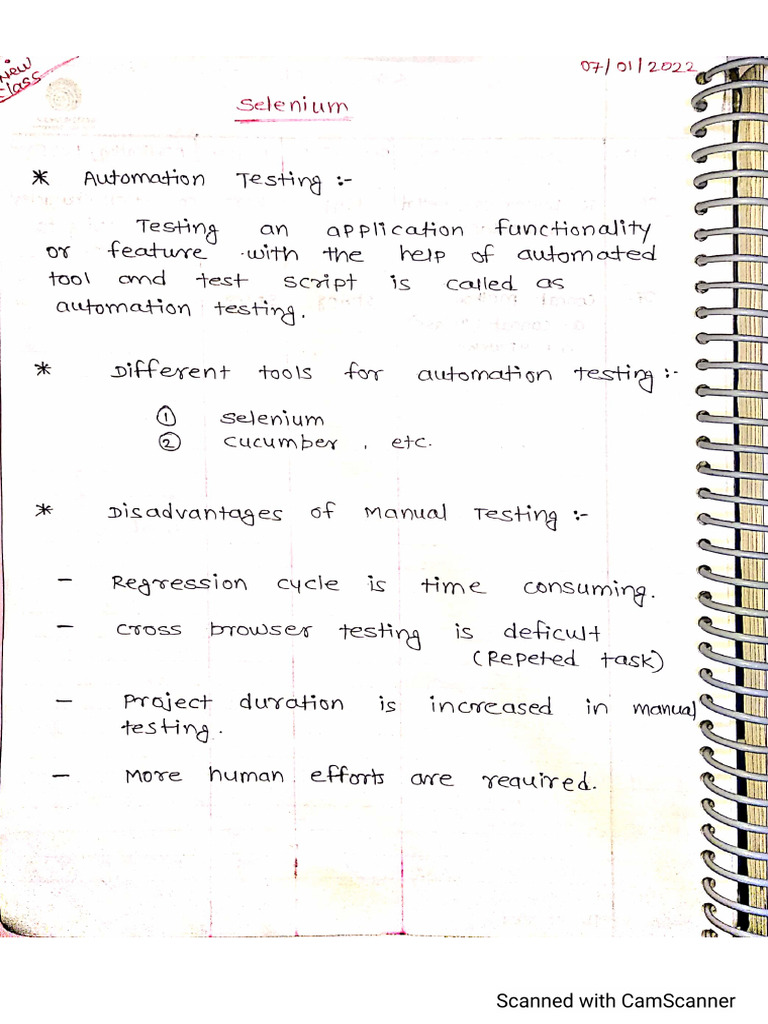 New
Class
07/01/2022
Selenium
* Automation Testing :-
Testing an application functionality
or feature with the help of automated
tool and test script is called as
automation testing.
* Different tools for automation testing :-
① Selenium
② Cucumber, etc.
* Disadvantages of Manual Testing :-
- Regression cycle is time consuming.
- Cross browser testing is deficult
(Repeted task)
- Project duration is increased in manual
testing.
- More human efforts are required.
Scanned with CamScanner